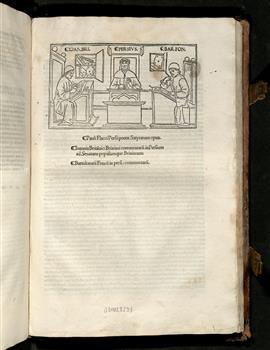 IOAN. BRI. PERSIVS. BARTON.
Pauli Flacci Persii poete Satyrarum opus.
Ioannis Britannici Brixiani commentarii in Persium
ad Senatum populumque Brixianum
Bartholomei Fontii in persium commentarii.